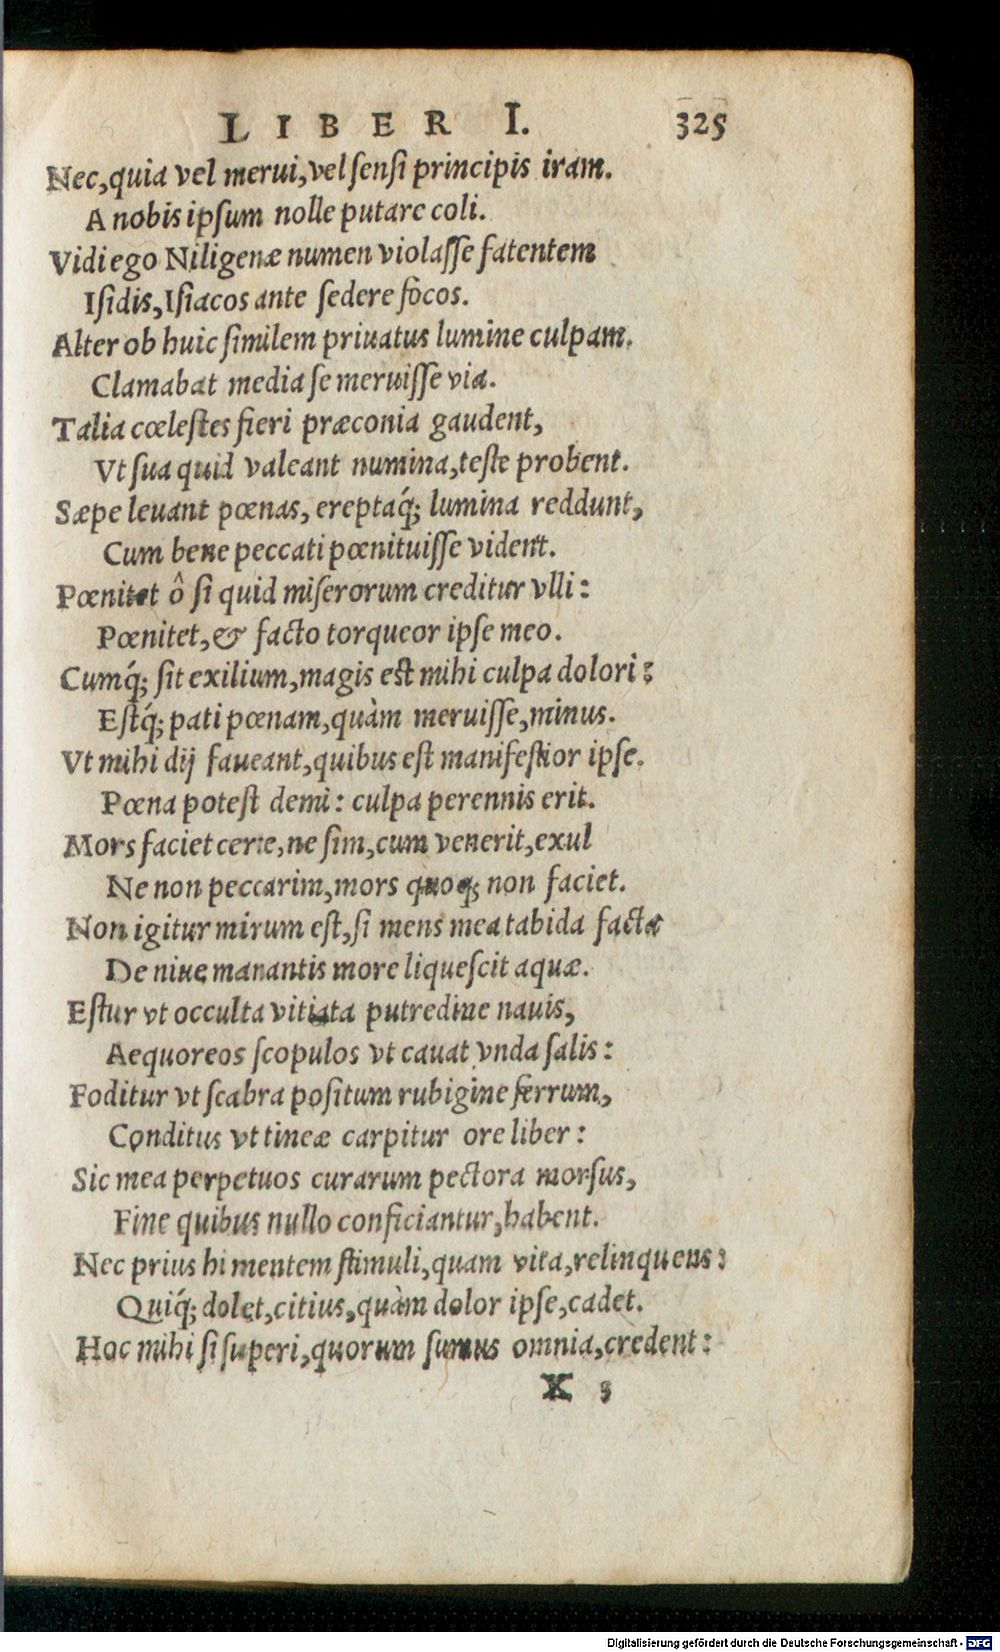 LIBER I. 325
Nec,quia vel merui,vel ſenſi principis iram.
A nobis ipſum nolle putare coli.
Vidi ego Niligenæ numen violaſſe fatentem
Iſidis,Iſiacos ante ſedere focos.
Alter ob huic ſimilem priuatus lumine culpam.
Clamabat media ſe meruiſſe via.
Talia cœleſtes fieri præconia gaudent,
Vt ſua quid valeant numina,teſte probent.
Sæpe leuant pœnas, ereptaq́; lumina reddunt,
Cum bene peccati pœnituiſſe vident.
Pœnitet ô ſi quid miſerorum creditur vlli:
Pœnitet,& facto torqueor ipſe meo.
Cumq́; ſit exilium,magis eſt mihi culpa dolori:
Eſtq́; pati pœnam,quàm meruiſſe,minus.
Vt mihi dij faueant,quibus eſt manifeſtior ipſe.
Pœna poteſt demi: culpa perennis erit.
Mors faciet certe,ne ſim,cum venerit,exul
Ne non peccarim,mors quoq; non faciet.
Non igitur mirum eſt,ſi mens mea tabida facta
De niue manantis more liqueſcit aquæ.
Eſtur vt occulta vitiata putredine nauis,
Aequoreos ſcopulos vt cauat vnda ſalis:
Foditur vt ſcabra poſitum rubigine ferrum,
Conditus vt tineæ carpitur ore liber:
Sic mea perpetuos curarum pectora morſus,
Fine quibus nullo conficiantur,habent.
Nec prius hi mentem ſtimuli,quam vita,relinquens:
Quiq́; dolet,citius,quàm dolor ipſe,cadet.
Hoc mihi ſi ſuperi,quorum ſumus omnia,credent:
X 3
Digitalisierung gefördert durch die Deutsche Forschungsgemeinschaft - DFG